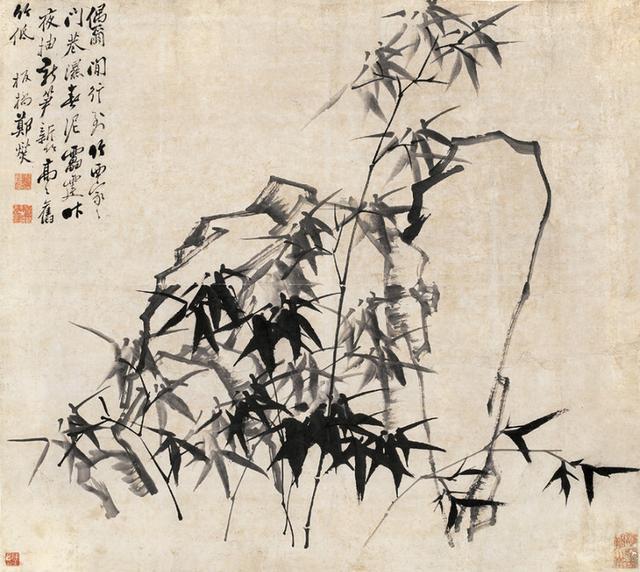 偶爾閒行到竹西家〻
門巷濕春泥雷霆昨
夜抽新笋新竹高〻舊
竹低 板橋鄭燮